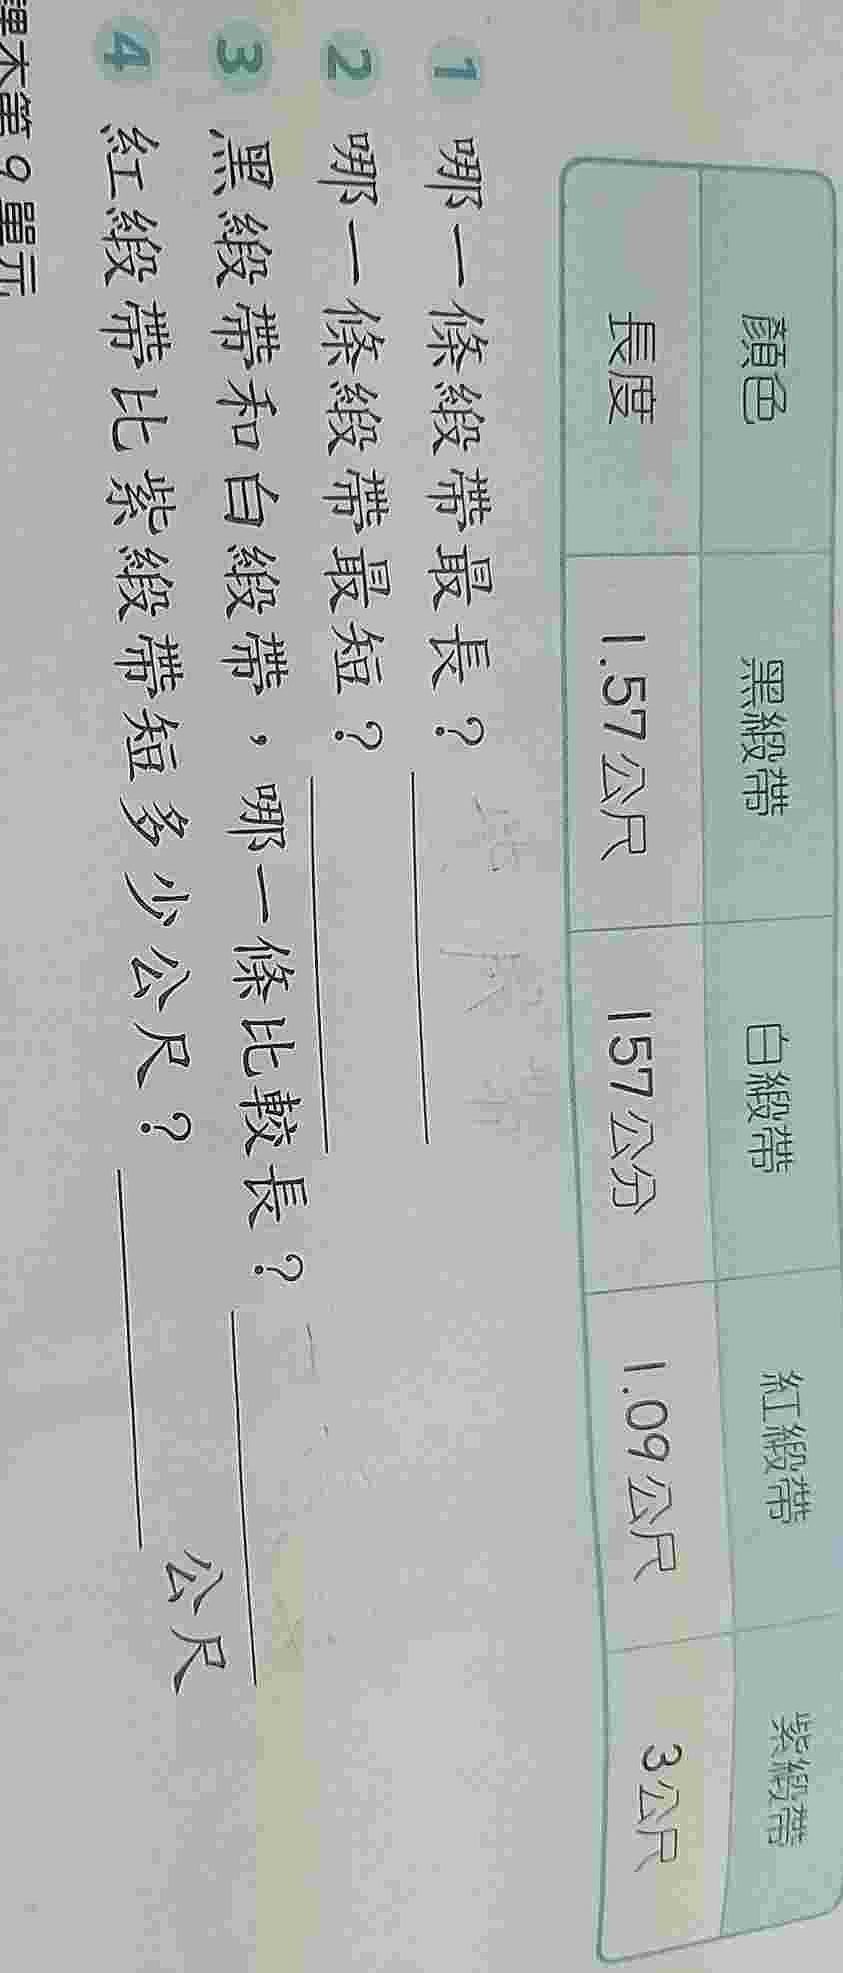 顏色 黑緞帶 白緞帶 紅緞帶 紫緞帶
長度 1.57公尺 157公分 1.09公尺 3公尺
1 哪一條緞帶最長？
2 哪一條緞帶最短？
3 黑緞帶和白緞帶，哪一條比較長？
4 紅緞帶比紫緞帶短多少公尺？ 公尺
課本第9單元